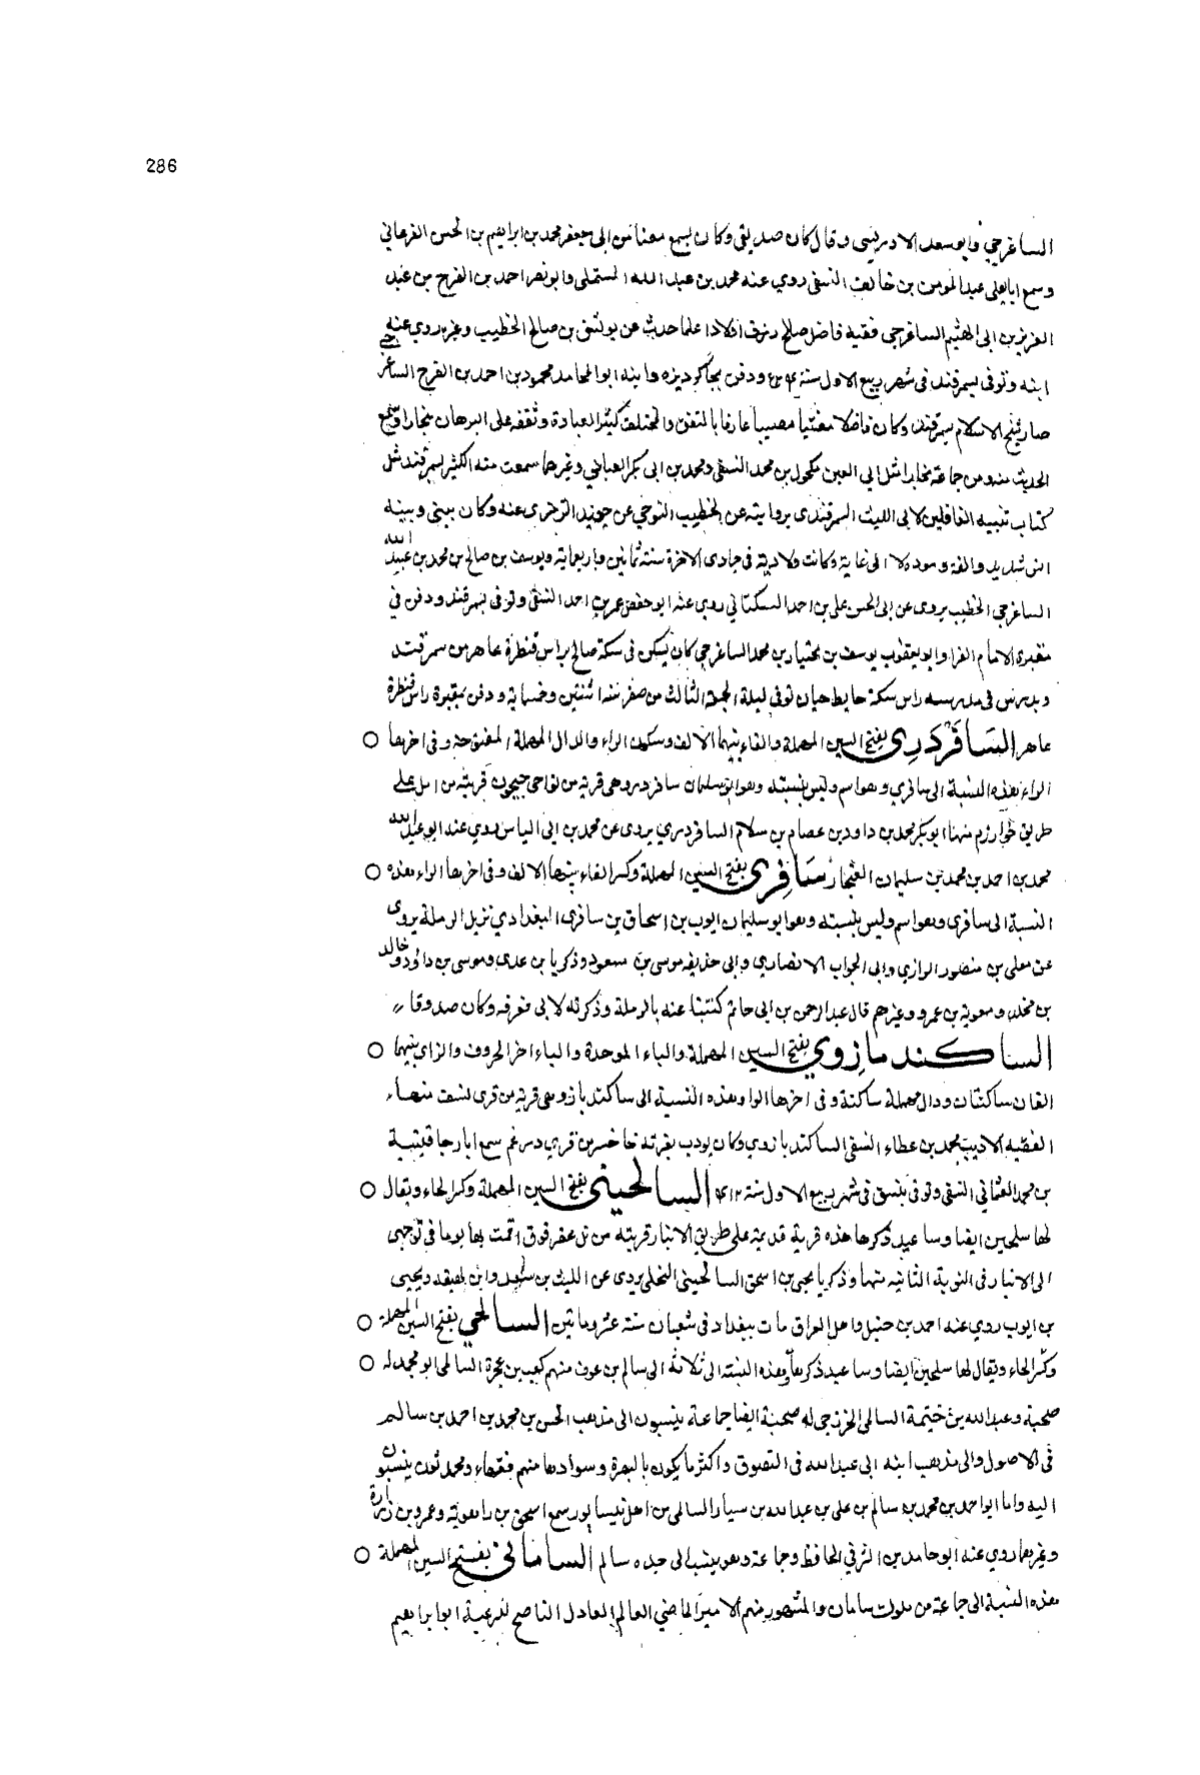 286
الساغرجي وابو سعد الادريسي وقال كان صديقي وكان يسمع معنا من ابي جعفر محمد بن ابراهيم بن الحسن الفرغاني
وسمع ابا يعلى عبد المومن بن خالف النسفي روي عنه محمد بن عبد الله المستملي وابو نصر احمد بن الفرج بن عبد
العزيز بن ابي الهيثم الساغرجي فقيه فاضل صالح رزق اولادا علما حدث عن يوسف بن صالح الخطيب وغيره روي عنه
ابنه وتوفي بسمرقند في شهر ربيع الاول سنة ودفن بجاكرديزه وابنه ابو المحامد محمود بن احمد بن الفرج الساغرجي
صار شيخ الاسلام بسمرقند وكان فاضلا مفتيا مصيبا عارفا بالمتفق والمختلف كثير العبادة وتفقه على البرهان ببخارا وسمع
الحديث منه ومن جماعة بخارا مثل ابي المعين مكحول بن محمد النسفي ومحمد بن ابي بكر العباني وغيرها سمعت منه الكثير بسمرقند مثل
كتاب تنبيه الغافلين لابي الليث السمرقندي بروايته عن الخطيب النوحي عن الترمذي عنه وكان بيني وبينه
انس شديد والفة ومودة لا الى غاية وكانت ولادته في جمادى الاخرة سنة ثمانين واربعماية ويوسف بن صالح بن محمد بن عبيد الله
الساغرجي الخطيب يروي عن ابي الحسن علي بن احمد السنكباثي روي عنه ابو حفص عمر بن احمد النسفي وتوفي بسمرقند ودفن في
مقبرة الامام الفرا وابو يعقوب يوسف بن بختيار بن محمد الساغرجي كان يسكن في سكة صالح براس قنطرة عاهر من سمرقند
ويدرس في مدرسه راس سكة حايط حيان توفي ليلة الجمعة الثالث من صفر سنة اثنتين وخمسماية ودفن بمقبرة راس قنطرة
عاهر السافَرْدَرِي بفتح السين المهملة والفاء بينهما الالف وسكون الراء والدال المهملة المفتوحة وفي اخرها
الراء هذه النسبة الى سافري وهو اسم وليس بنسبته وهو ابو سلمان سافردر وهي قرية من نواحي جيحون قريبة من امل على
طريق خوارزم منها ابو بكر محمد بن داود بن عصام بن سلام السافردري يروي عن محمد بن ابي الياس روي عنه ابو عبد الله
محمد بن احمد بن محمد بن سليمان الغنجار سَافِرِي بفتح السين المهملة وكسر الفاء بينهما الالف وفي اخرها الراء هذه
النسبة الى سافري وهو اسم وليس بنسبته وهو ابو سليمان ايوب بن اسحاق بن سافري البغدادي نزيل الرملة يروي
عن معلى بن منصور الرازي وابي الجواب الانصاري وابي حذيفه موسى بن مسعود وزكريا بن عدي وموسى بن داود وخالد
بن مخلد ومعوية بن عمرو وغيرهم قال عبد الرحمن بن ابي حاتم كتبنا عنه بالرملة وذكرته لابي فعرفه وكان صدوقا
الساكنديازوي بفتح السين المهملة والباء الموحدة والياء اخر الحروف والزاي بينهما
الفان ساكنتان ودال مهملة ساكنة وفي اخرها الواو هذه النسبة الى ساكنديازو وهي قرية من قرى نسف منها
الفقيه الاديب محمد بن عطاء النسفي الساكنديازوي وكان يودب بقريته سمع ابا رجا قتيبة
بن محمد العثماني النسفي وتوفي بنسف في شهر ربيع الاول سنة السالحيني بفتح السين المهملة وكسر الحاء ويقال
لها سلحين ايضا وسا عيد ذكرها هذه قرية قديمة على طريق الانبار قريبة من تل عقرقوف اقمت بها يوما في توجهي
الى الانبار في النوبة الثانيه منها وزكريا يحيى بن اسحق السالحيني البجلي يروي عن الليث بن سعد وابن لهيعة ويحيى
بن ايوب روي عنه احمد بن حنبل واهل العراق مات ببغداد في شعبان سنة عشر ومائتين السالحي بفتح السين المهملة
وكسر الحاء ويقال لها سلحين ايضا وسا عيد ذكرها وهذه النسبته الى ثلاثة الى سالم بن عوف منهم كعب بن عجرة السالمي ابو محمد له
صحبة وعبد الله بن خيثمة السالمي الخزرجي له صحبة ايضا جماعة ينسبون الى مذهب الحسن بن محمد بن احمد بن سالم
في الاصول والى مذهب ابنه ابي عبد الله في التصوف واكثر ما يكون بالبصرة وسوادها منهم فقهاء ومحدثون ينسبون
اليه واما ابو احمد بن محمد بن سالم بن علي بن عبد الله بن سيار السالمي من اهل نيسابور سمع اسحق بن راهويه وعمرو بن زرارة
وغيرهما روي عنه ابو حامد بن الشرقي الحافظ وجماعة وهو ينسب الى جده سالم الساماني بفتح السين المهملة
هذه النسبة الى جماعة من ملوك سامان والمشهور منهم الامير الماضي العالم العادل الناصح للرعية ابو ابراهيم